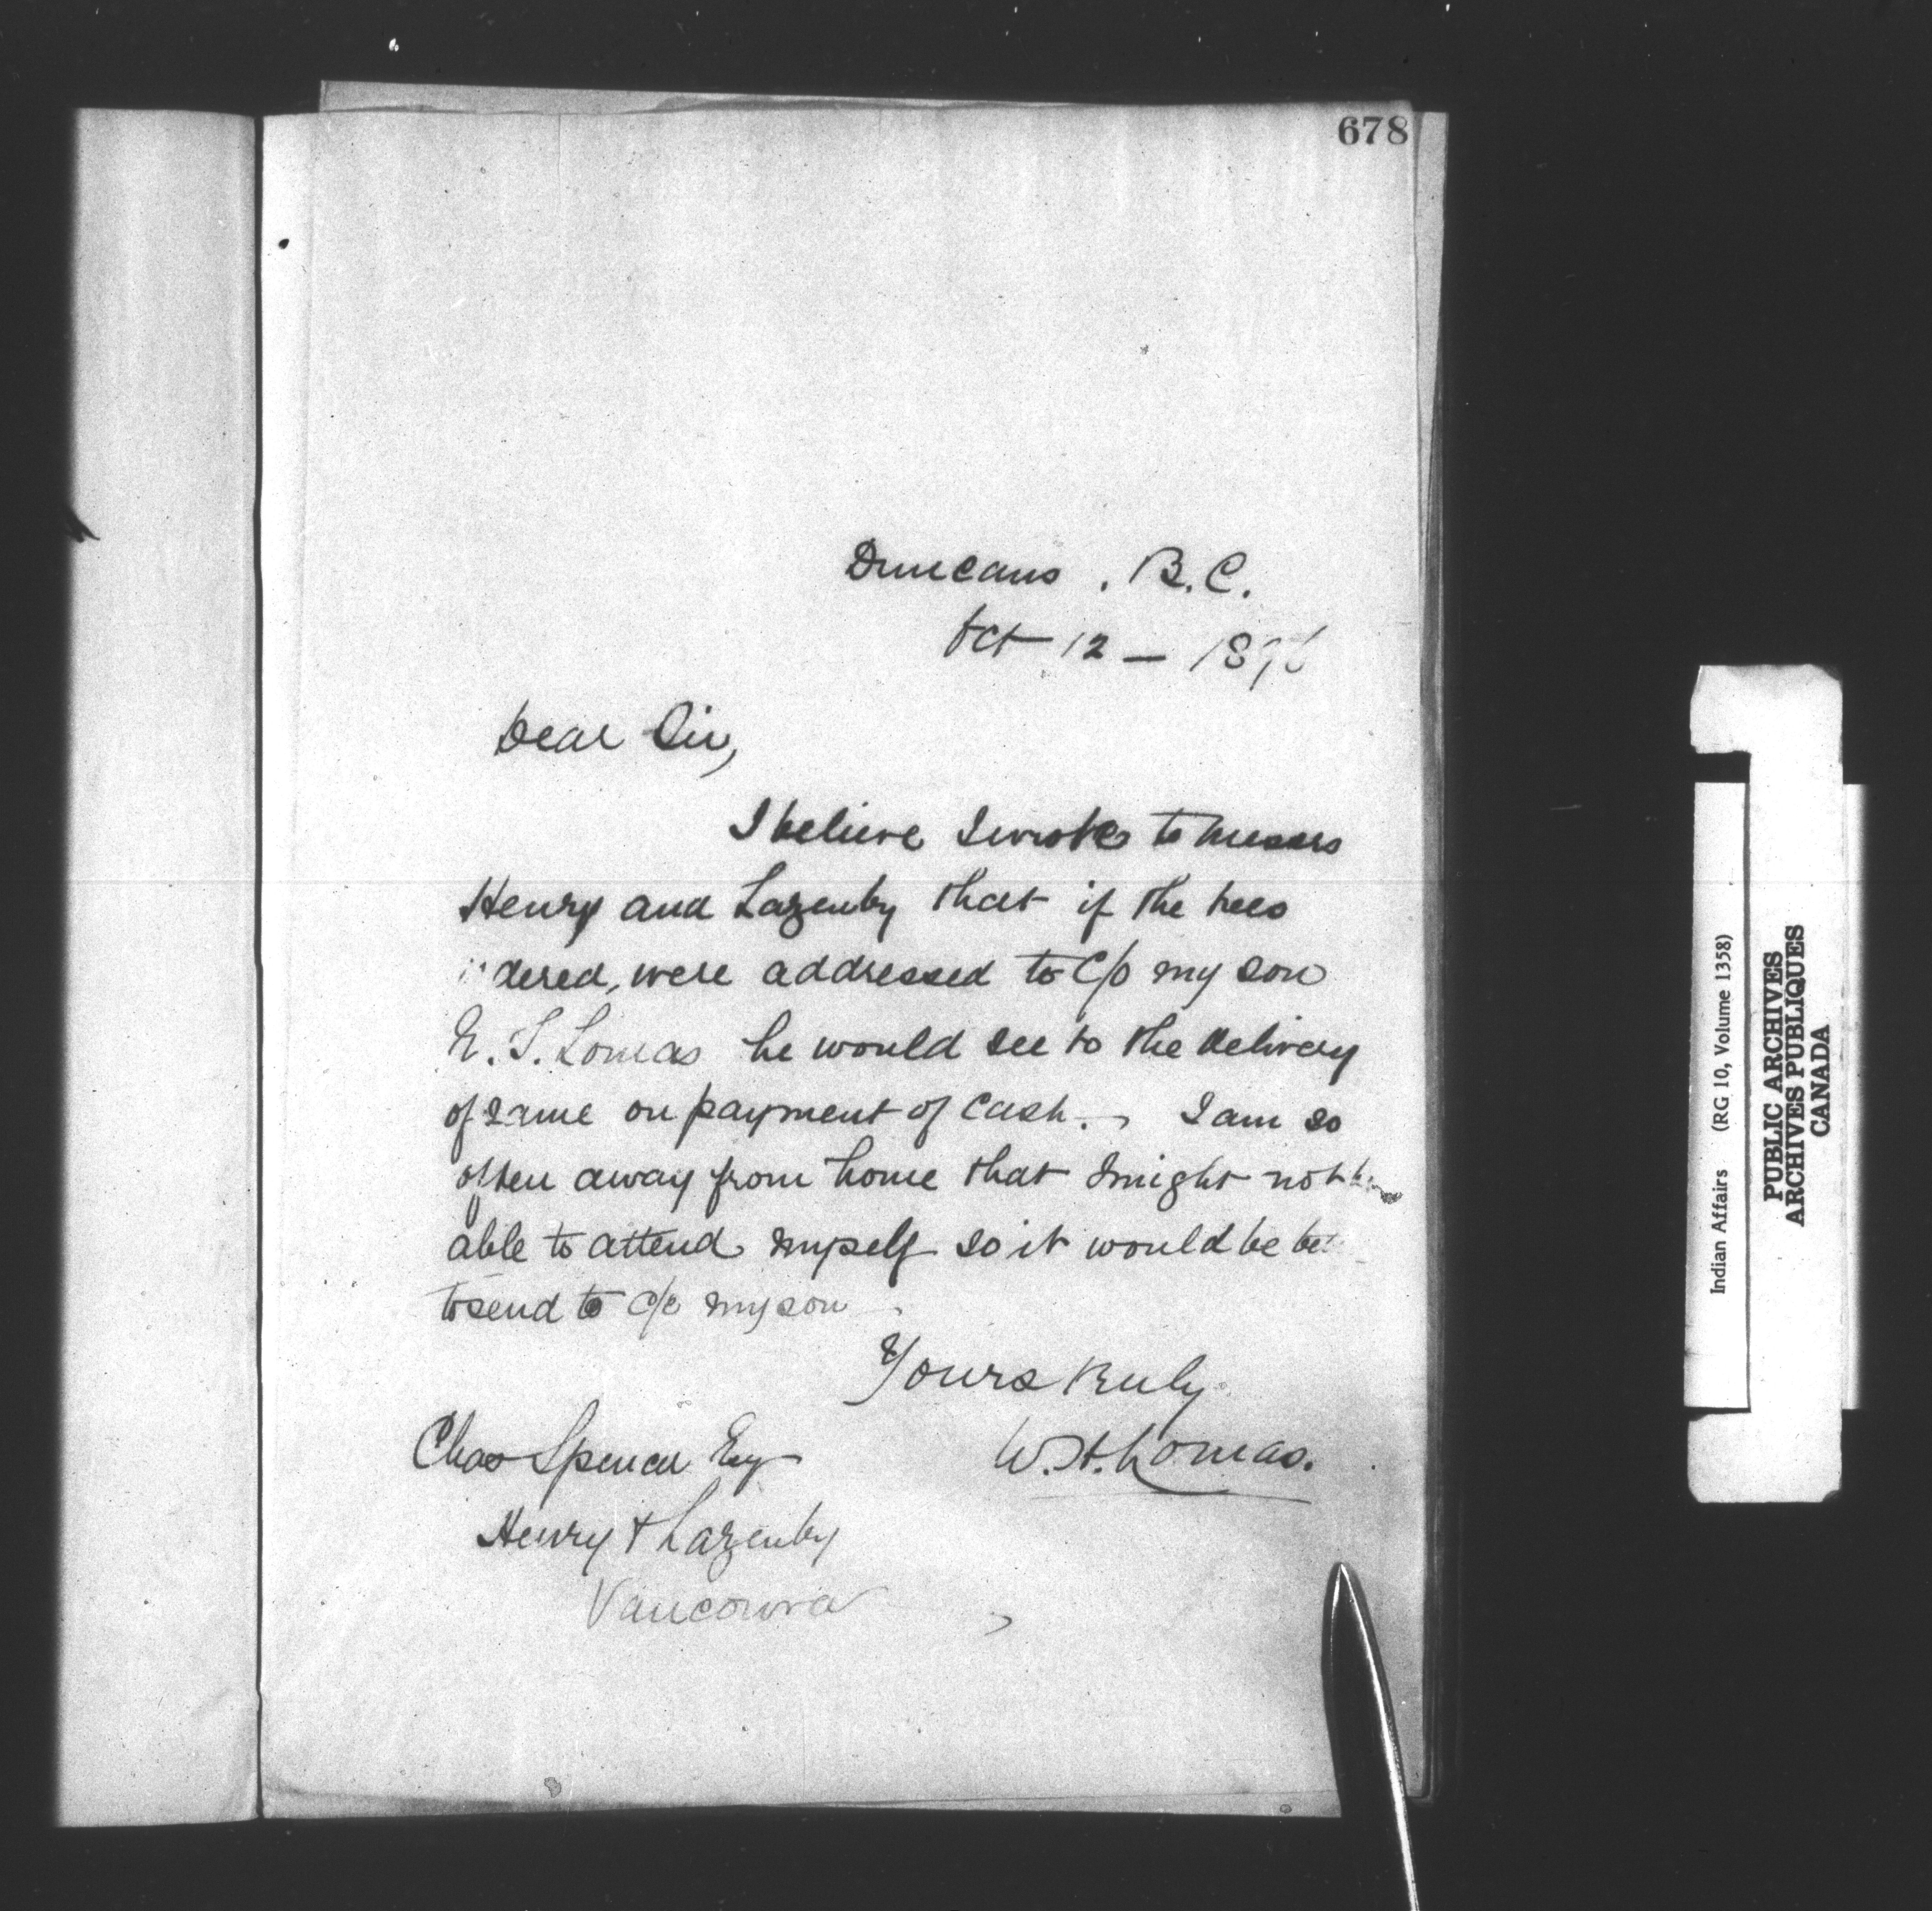 678
Duncans, B.C.
Oct 12 - 189
Dear Sir,
I believe I wrote to Messrs
Henry and Lazenby that if the trees
dered, were addressed to c/o my son
Lomas he would see to the delivery
of same on payment of cash. I am so
often away from home that I might not be
able to attend myself so it would be
to send to c/o my son
Yours truly
W.H. Lomas.
Chas Spencer Esq
Henry & Lazenby
Vancouver
Indian Affairs (RG 10, Volume 1358)
PUBLIC ARCHIVES
ARCHIVES PUBLIQUES
CANADA